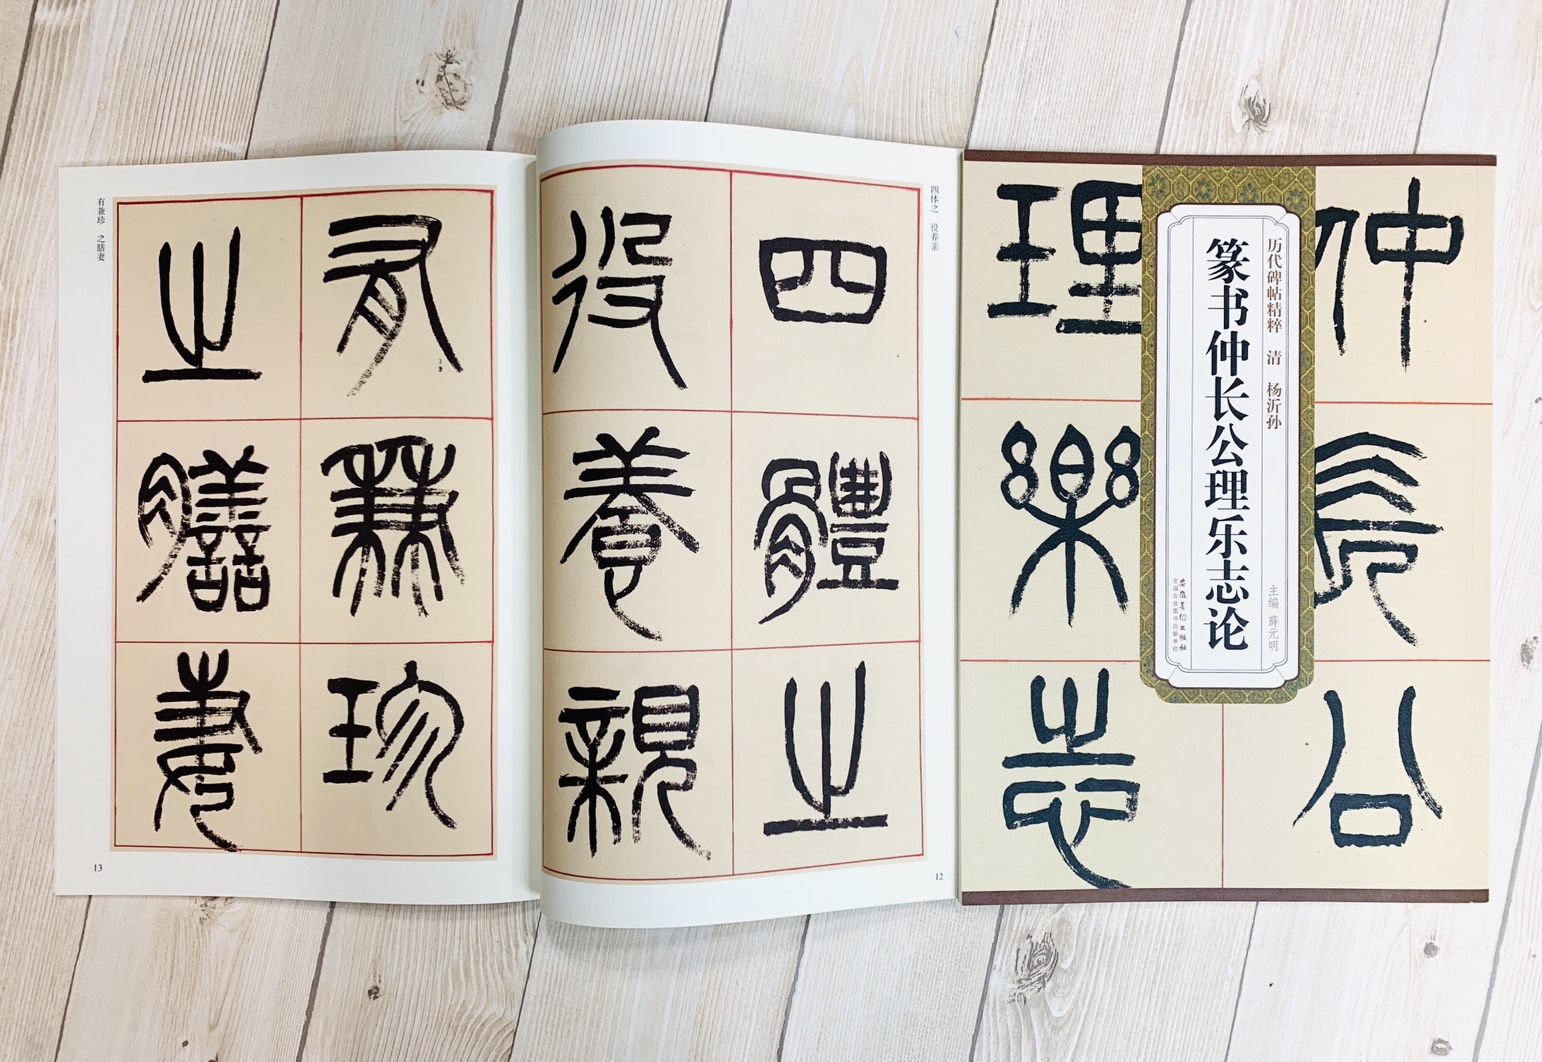 四體之
役養親
四体之 役养亲
12
有兼珍
之膳妻
有兼珍 之膳妻
13
仲長公
理樂志
历代碑帖精粹 清 杨沂孙
篆书仲长公理乐志论
主编 薛元明
安徽美术出版社
全国百佳图书出版单位